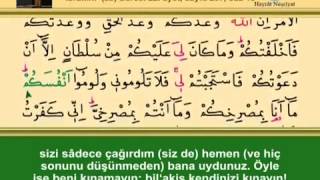 Hayrât Neşriyat
الْاَمْرُ اِنَّ اللّٰهَ وَعَدَكُمْ وَعْدَ الْحَقِّ وَوَعَدْتُكُمْ
فَاَخْلَفْتُكُمْ وَمَا كَانَ لِيَ عَلَيْكُمْ مِنْ سُلْطَانٍ اِلَّٓا اَنْ
دَعَوْتُكُمْ فَاسْتَجَبْتُمْ لٖي فَلَا تَلُومُونٖي وَلُومُٓوا اَنْفُسَكُمْ
مَٓا اَنَا بِمُصْرِخِكُمْ وَمَٓا اَنْتُمْ بِمُصْرِخِيَّ اِنّٖي كَفَرْتُ
sizi sâdece çağırdım (siz de) hemen (ve hiç
sonunu düşünmeden) bana uydunuz. Öyle
ise beni kınamayın; bil'akis kendinizi kınayın!